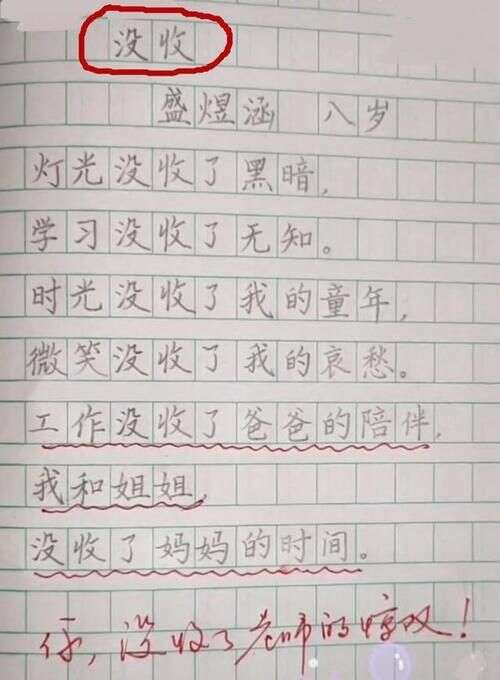 没收
盛煜涵 八岁
灯光没收了黑暗，
学习没收了无知。
时光没收了我的童年，
微笑没收了我的哀愁。
工作没收了爸爸的陪伴，
我和姐姐，
没收了妈妈的时间。
你，没收了老师的惊叹！